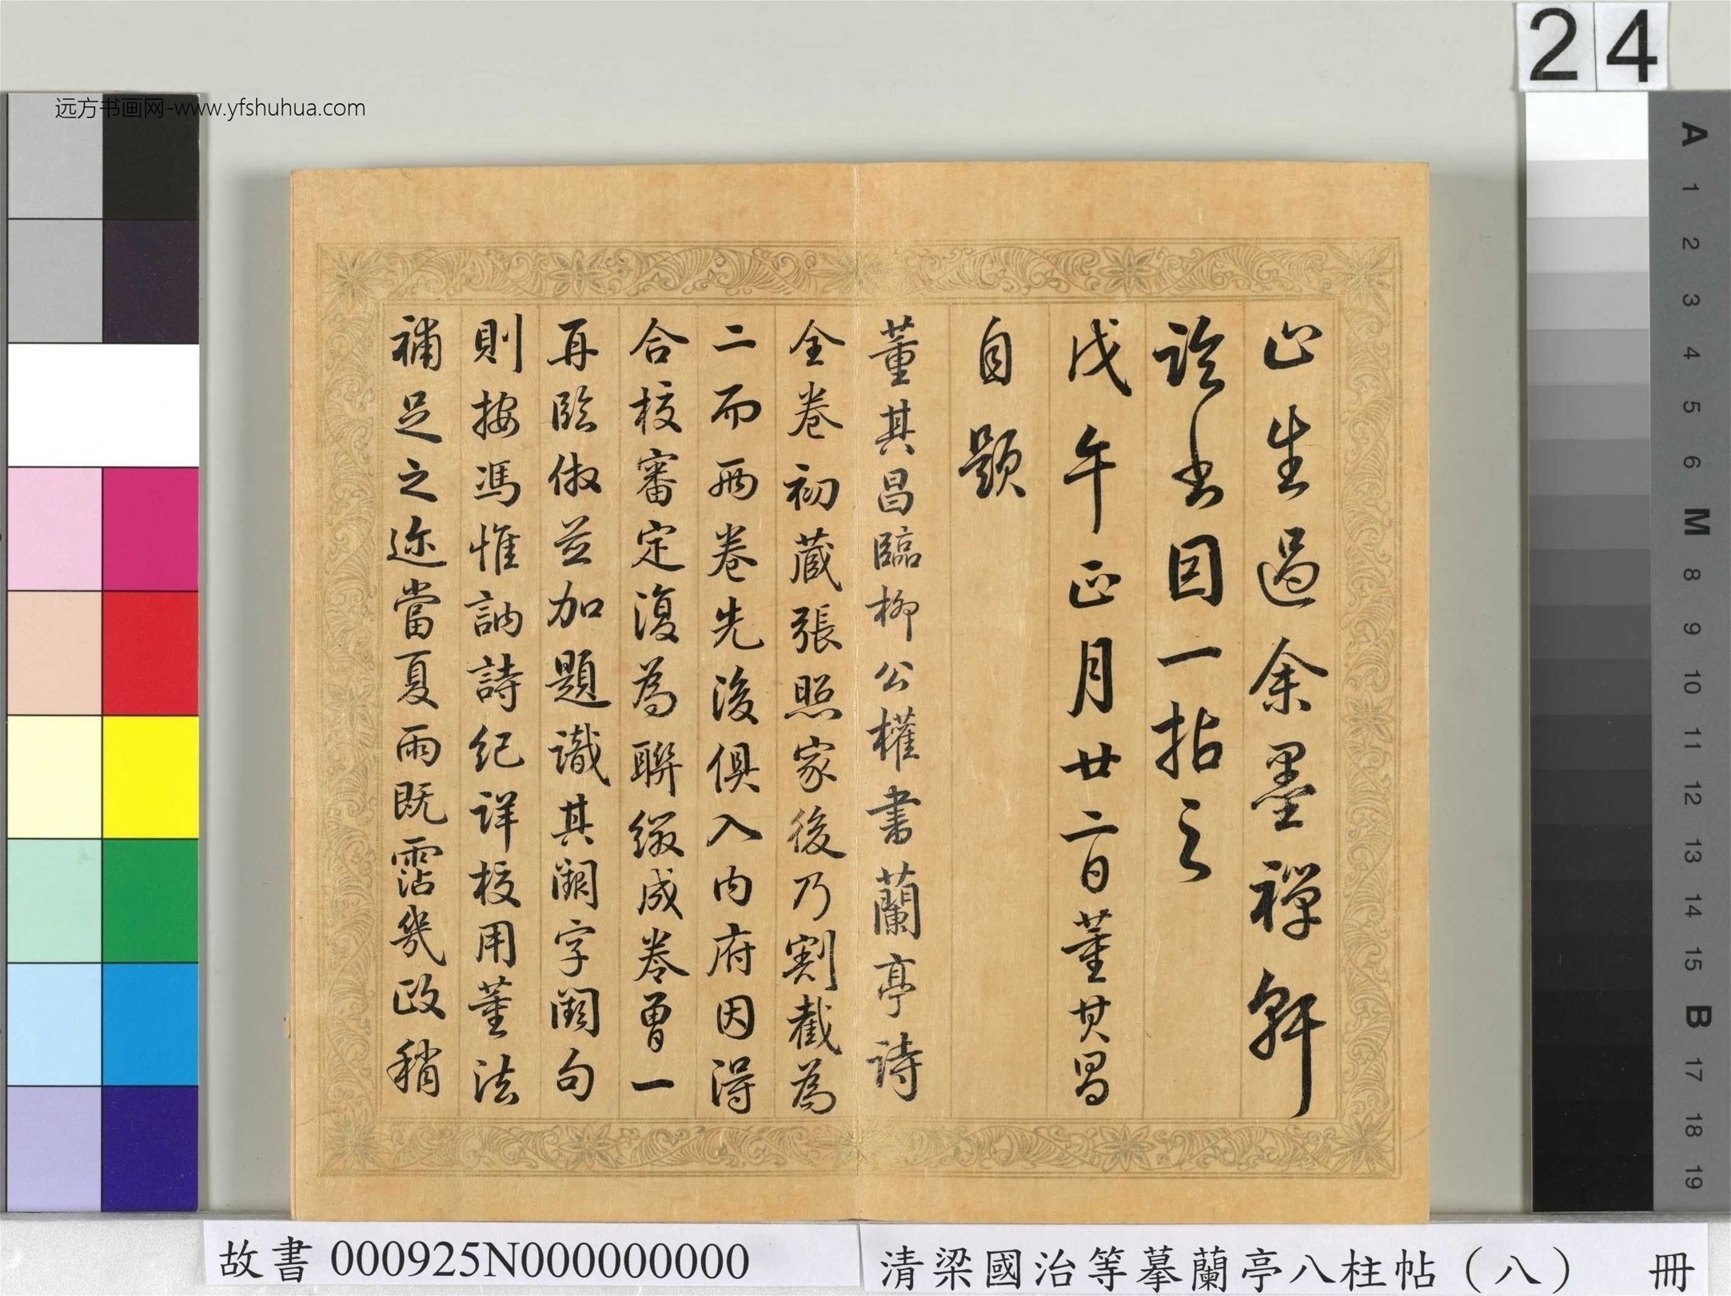 24
远方书画网-www.yfshuhua.com
止生過余墨禪軒
論書因一拈之
戊午正月廿二日董其昌
自題
董其昌臨柳公權書蘭亭詩
全卷初藏張照家後乃割截為
二而兩卷先後俱入內府因得
合校審定復為聯綴成卷曾一
再臨倣並加題識其闕字闕句
則按馮惟訥詩紀詳校用董法
補足之迩當夏雨既霑幾政稍
A
1
2
3
4
5
6
M
8
9
10
11
12
13
14
15
B
17
18
19
故書 000925N000000000
清梁國治等摹蘭亭八柱帖（八） 冊